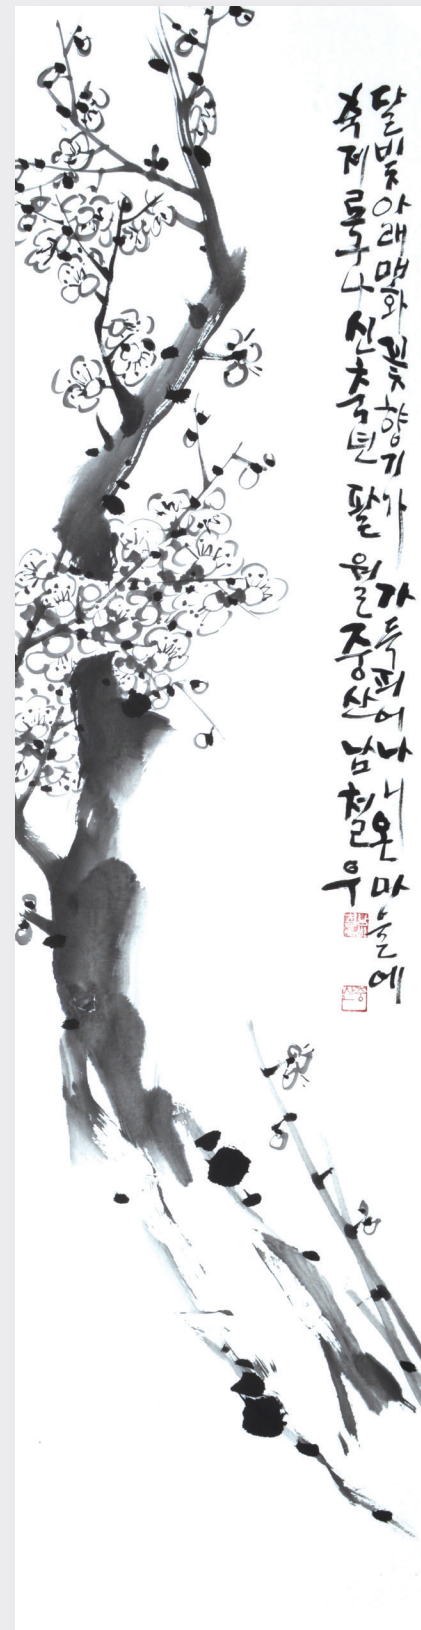 달빛 아래 매화 꽃향기가 가득 피어나니 온 마을에
축제로구나 신축년 팔월 중산 남철우